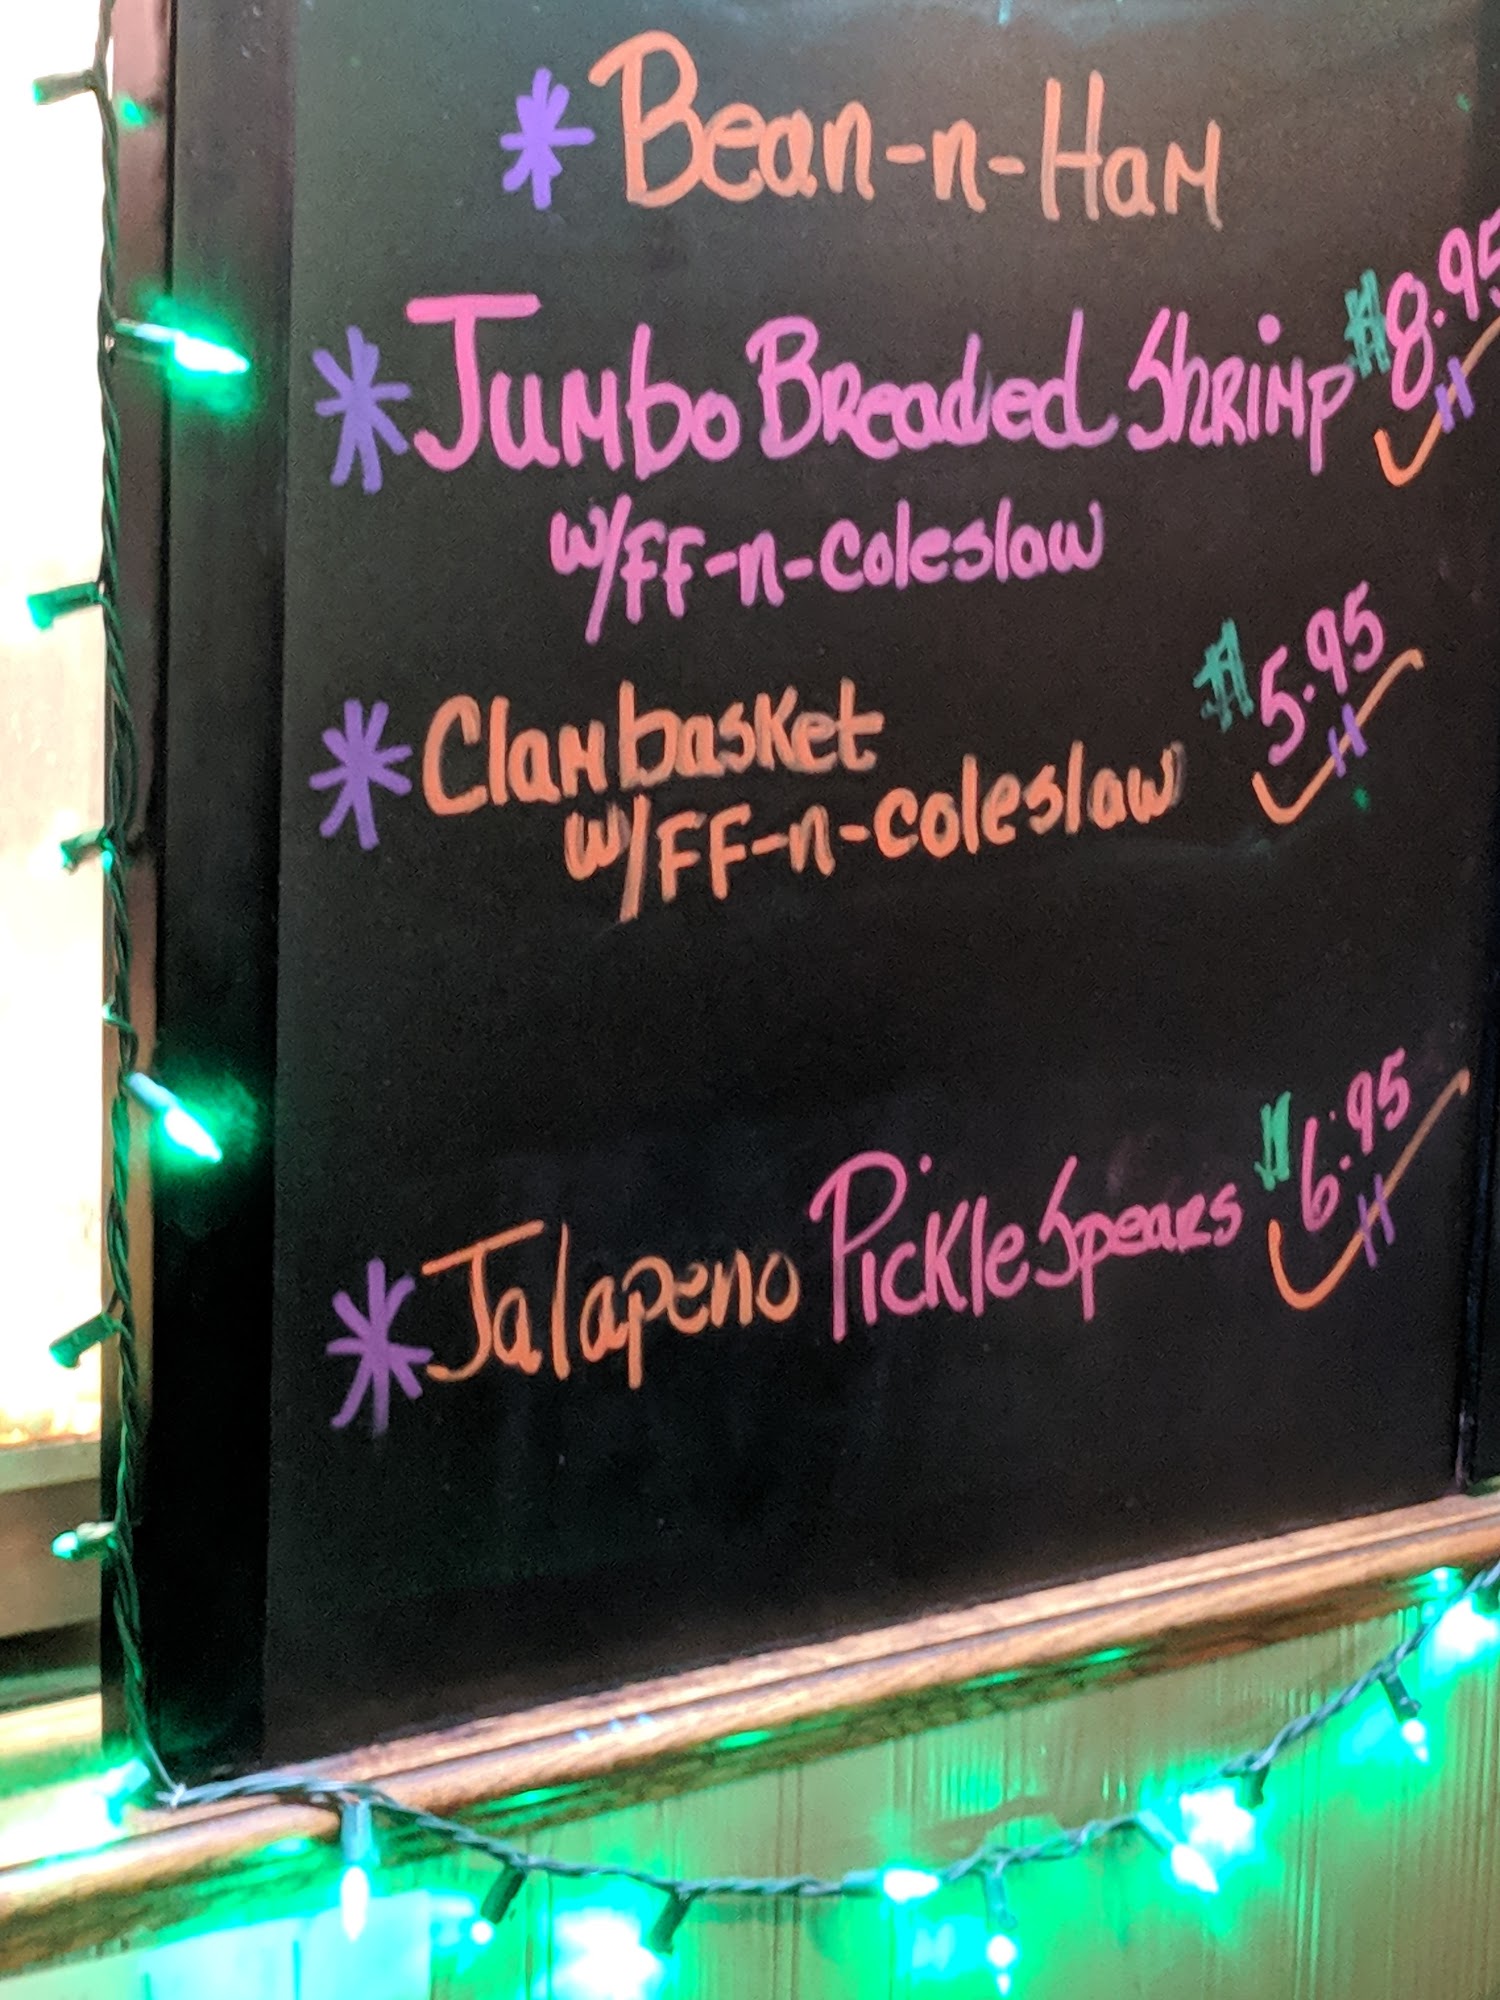 * Bean-n-Ham
* Jumbo Breaded Shrimp $8.95
w/FF-n-coleslaw
* Clambasket $5.95
w/FF-n-coleslaw
* Jalapeno Pickle Spears $6.95